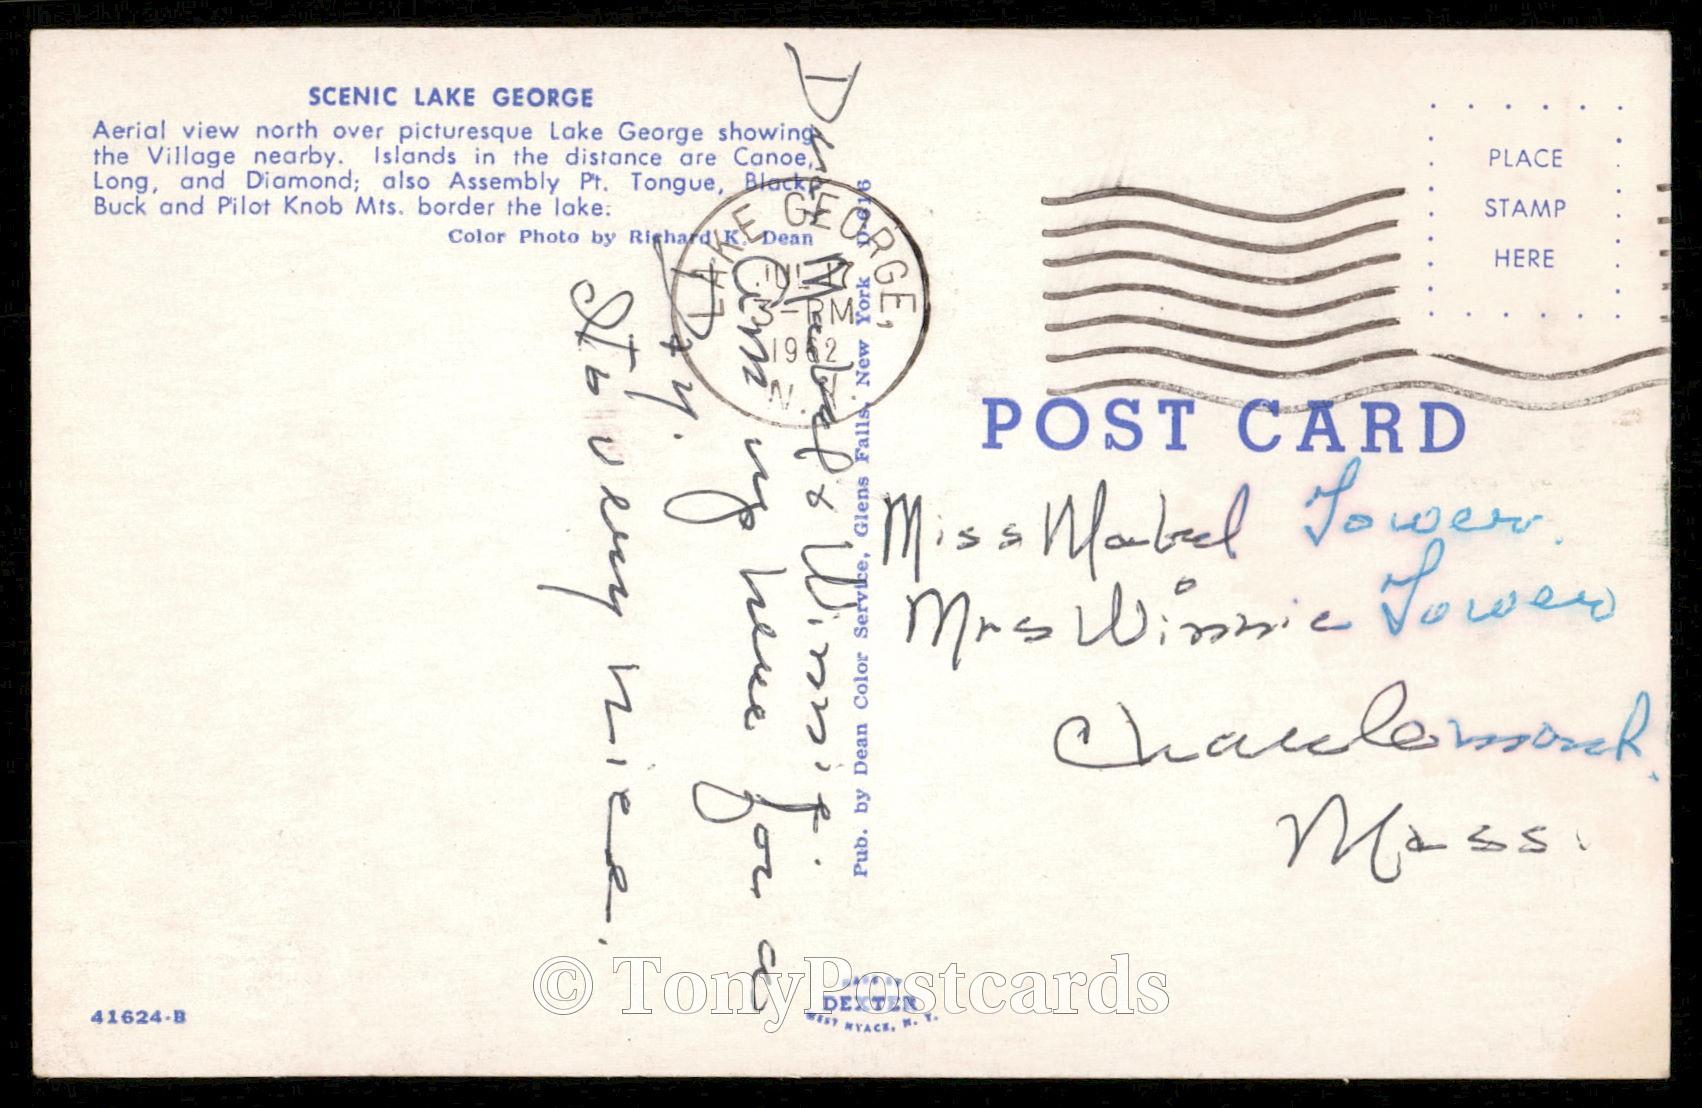 SCENIC LAKE GEORGE
Aerial view north over picturesque Lake George showing
the Village nearby. Islands in the distance are Canoe,
Long, and Diamond; also Assembly Pt. Tongue, Black,
Buck and Pilot Knob Mts. border the lake.
Color Photo by Richard K. Dean
LAKE GEORGE,
JUL 17
3-PM
1962
N.Y.
PLACE
STAMP
HERE
POST CARD
Dear Mabel & Winnie.
Am up here for a
Day.
It is very nice.
Pub. by Dean Color Service, Glens Falls, New York D-616
Miss Mabel Tower.
Mrs Winnie Tower
Charlemont.
Mass.
41624-B
MADE BY
DEXTER
WEST NYACK, N. Y.
© TonyPostcards